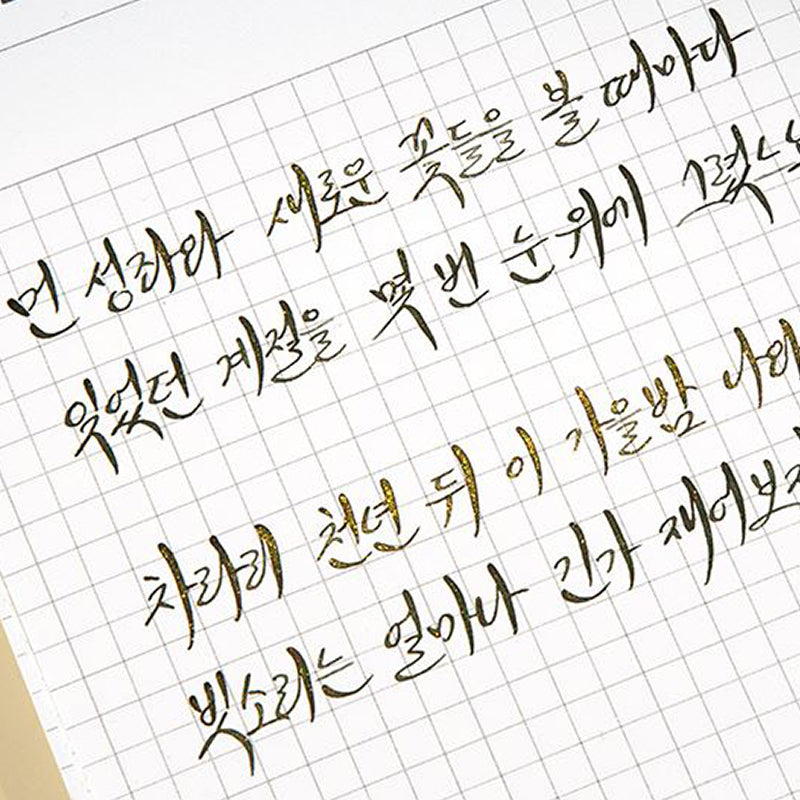 먼 성좌와 새로운 꽃들을 볼 때마다
잊었던 계절을 몇 번 눈 위에 그렷느
차라리 천년 뒤 이 가을밤 나와
빗소리는 얼마나 긴가 재어보자